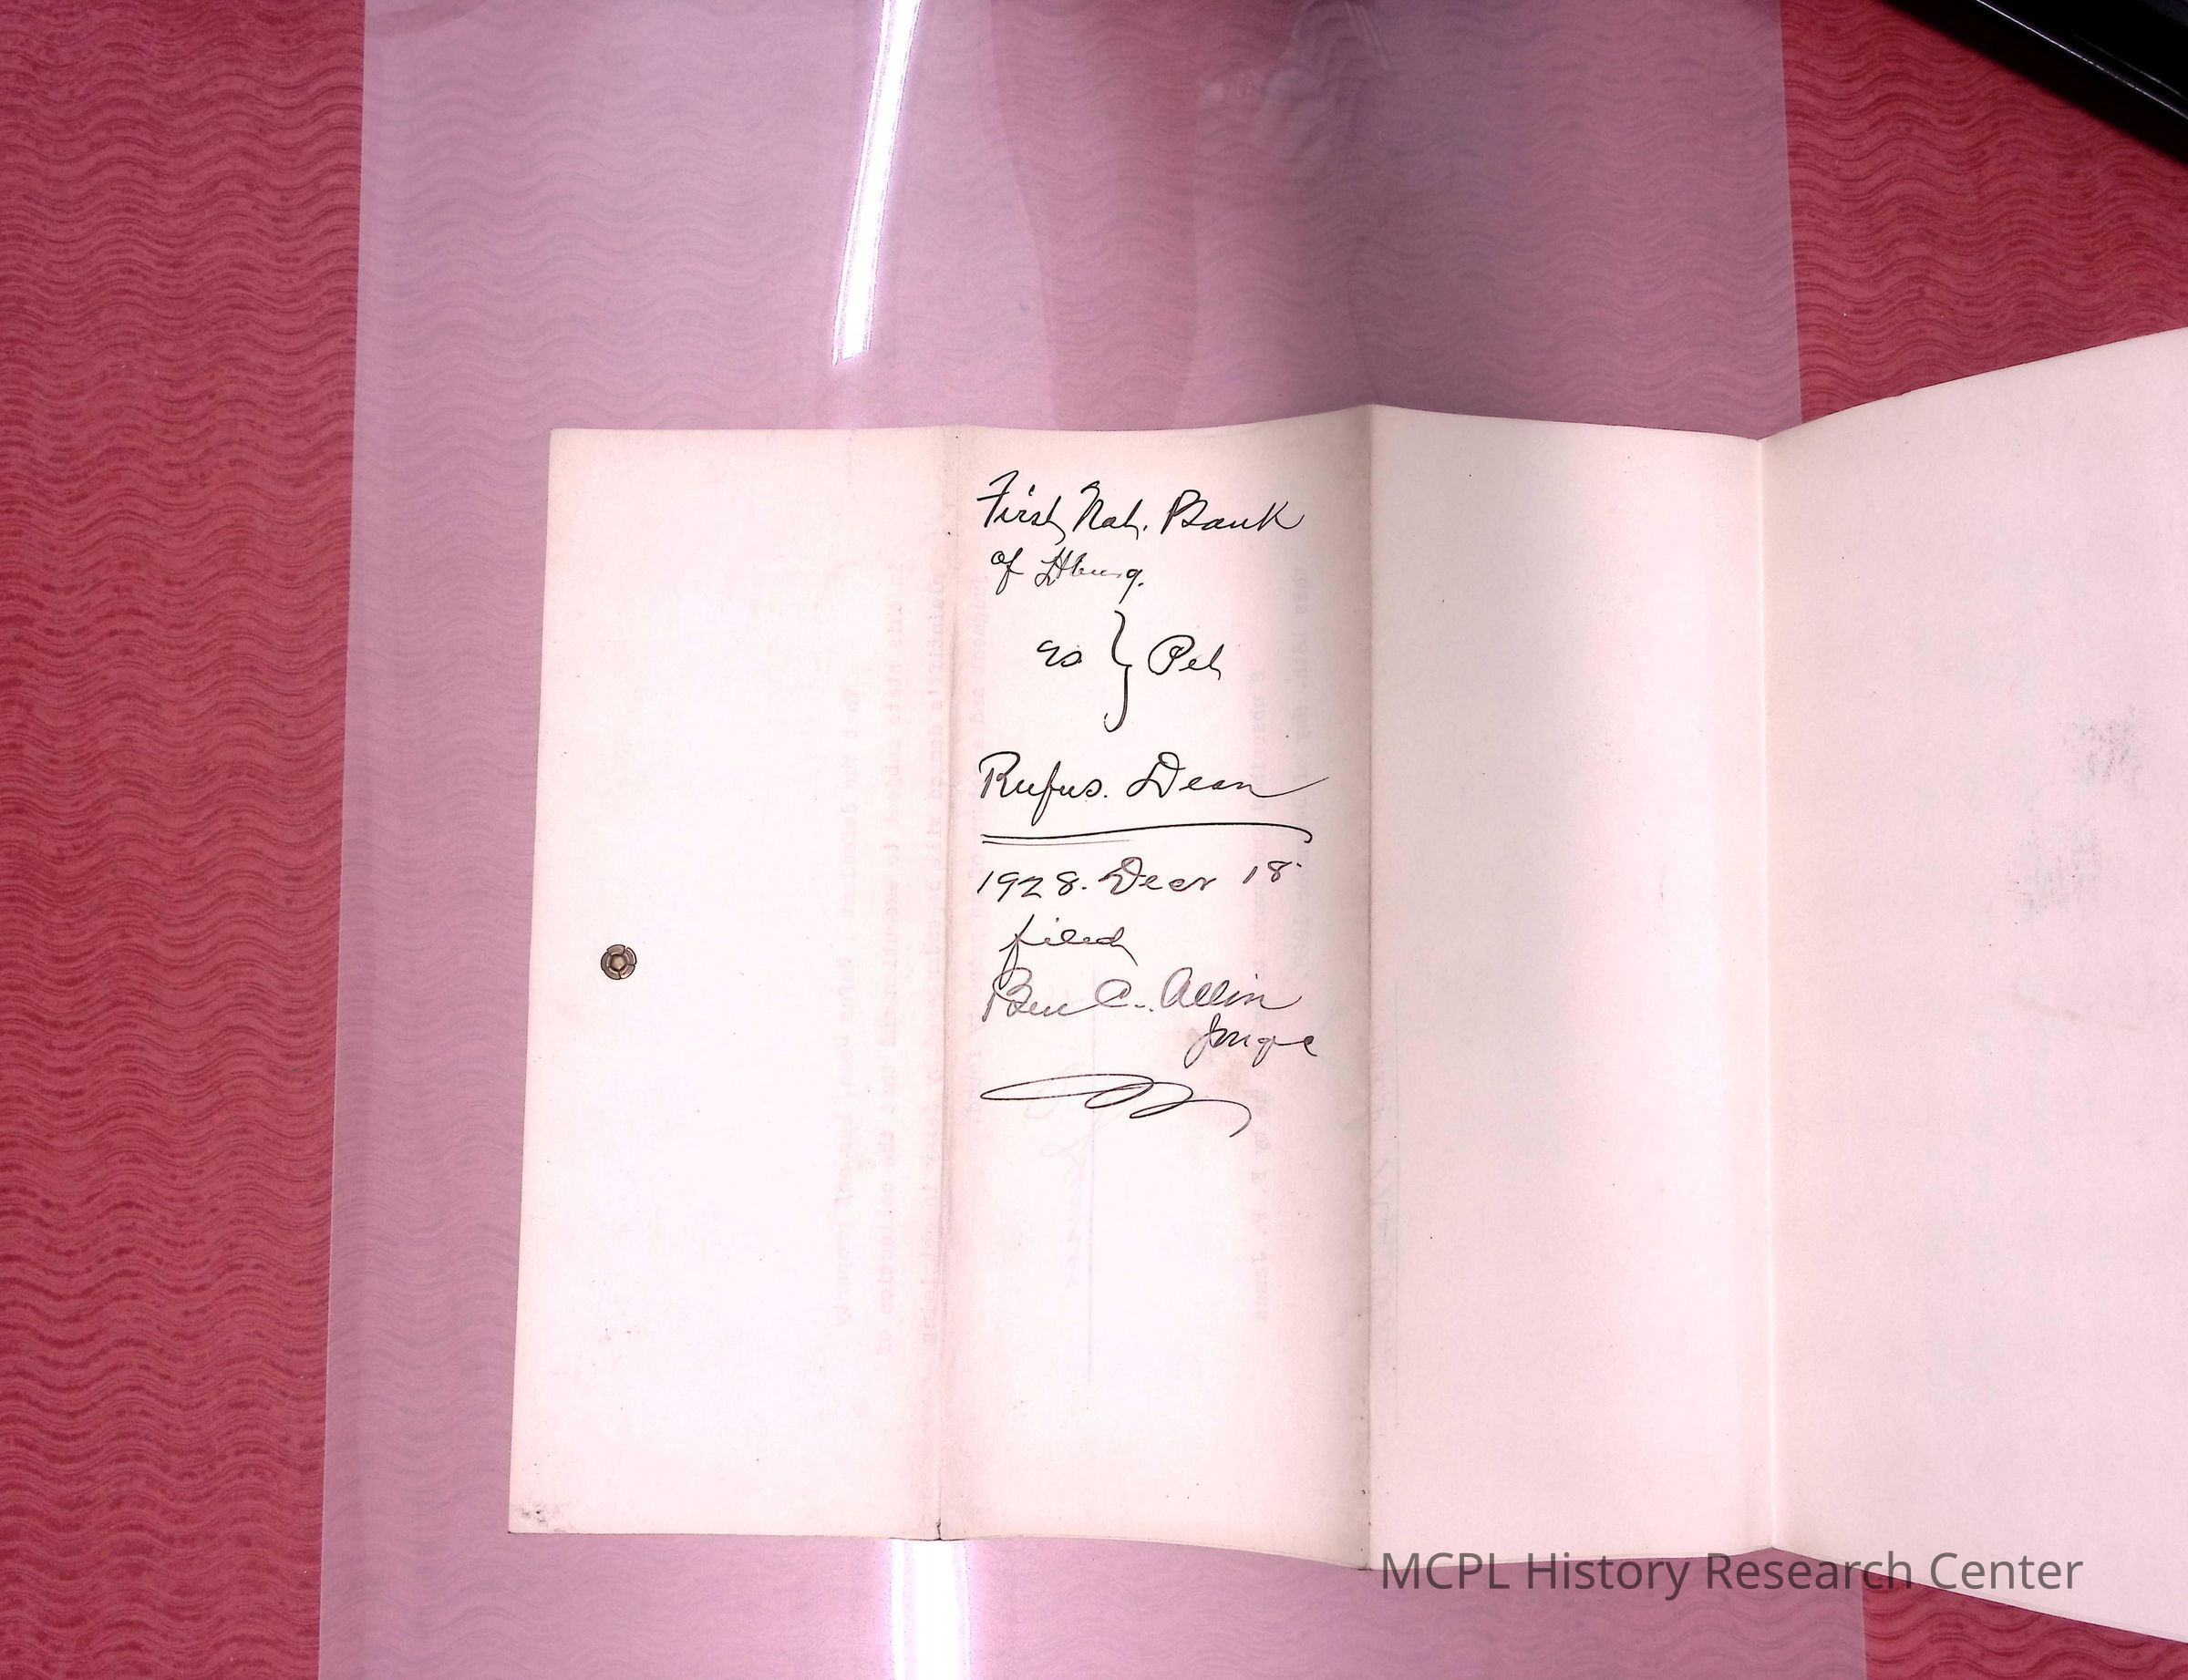 First Nat. Bank
of Hburg.
vs } Pet
Rufus. Dean
1928. Decr 18
filed
Ben C. Allin
Judge
MCPL History Research Center